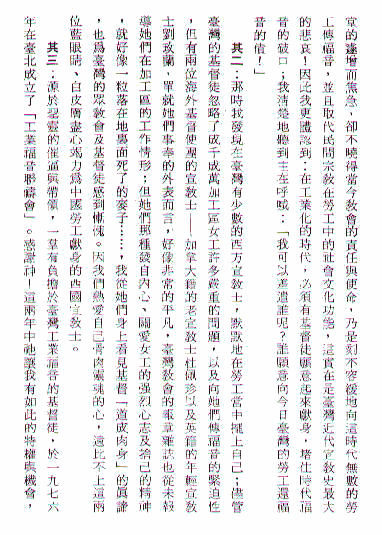 堂的遽增而焦急,卻不曉得當今教會的責任與使命,乃是刻不容緩地向這時代無數的勞
工傳福音,並且取代民間宗教在勞工中的社會文化功能,這實在是臺灣近代宣教史最大
的悲哀!因此我更體認到:在工業化的時代,必須有基督徒願意起來獻身,堵住時代福
音的破口;我清楚地聽到主在呼喊:「我可以差遣誰呢?誰願意向今日臺灣的勞工還福
音的債!」
其二:那時我發現在臺灣有少數的西方宣教士,默默地在勞工當中擺上自己;儘管
臺灣的基督徒忽略了成千成萬加工區女工許多嚴重的問題,以及向她們傳福音的緊迫性
,但有兩位海外基督使團的宣教士——加拿大籍的老宣教士杜佩珍以及英籍的年輕宣教
士劉玫蘭,單就她們事奉的外表而言,好像非常的平凡,臺灣教會的報章雜誌也從未報
導她們在加工區的工作情形;但她們那種發自內心、關愛女工的强烈心志及捨己的精神
,就好像一粒落在地裏面死了的麥子……,我從她們身上看見基督「道成肉身」的眞諦
,也爲臺灣的眾教會及基督徒感到慚愧。因我們熱愛自己骨肉靈魂的心,遠比不上這兩
位藍眼睛、白皮膚盡心竭力爲中國勞工獻身的西國宣教士。
其三:源於聖靈的催逼與帶領,一羣有負擔於臺灣工業福音的基督徒,於一九七六
年在臺北成立了「工業福音聯禱會」。感謝神!這兩年中祂讓我有如此的特權與機會,